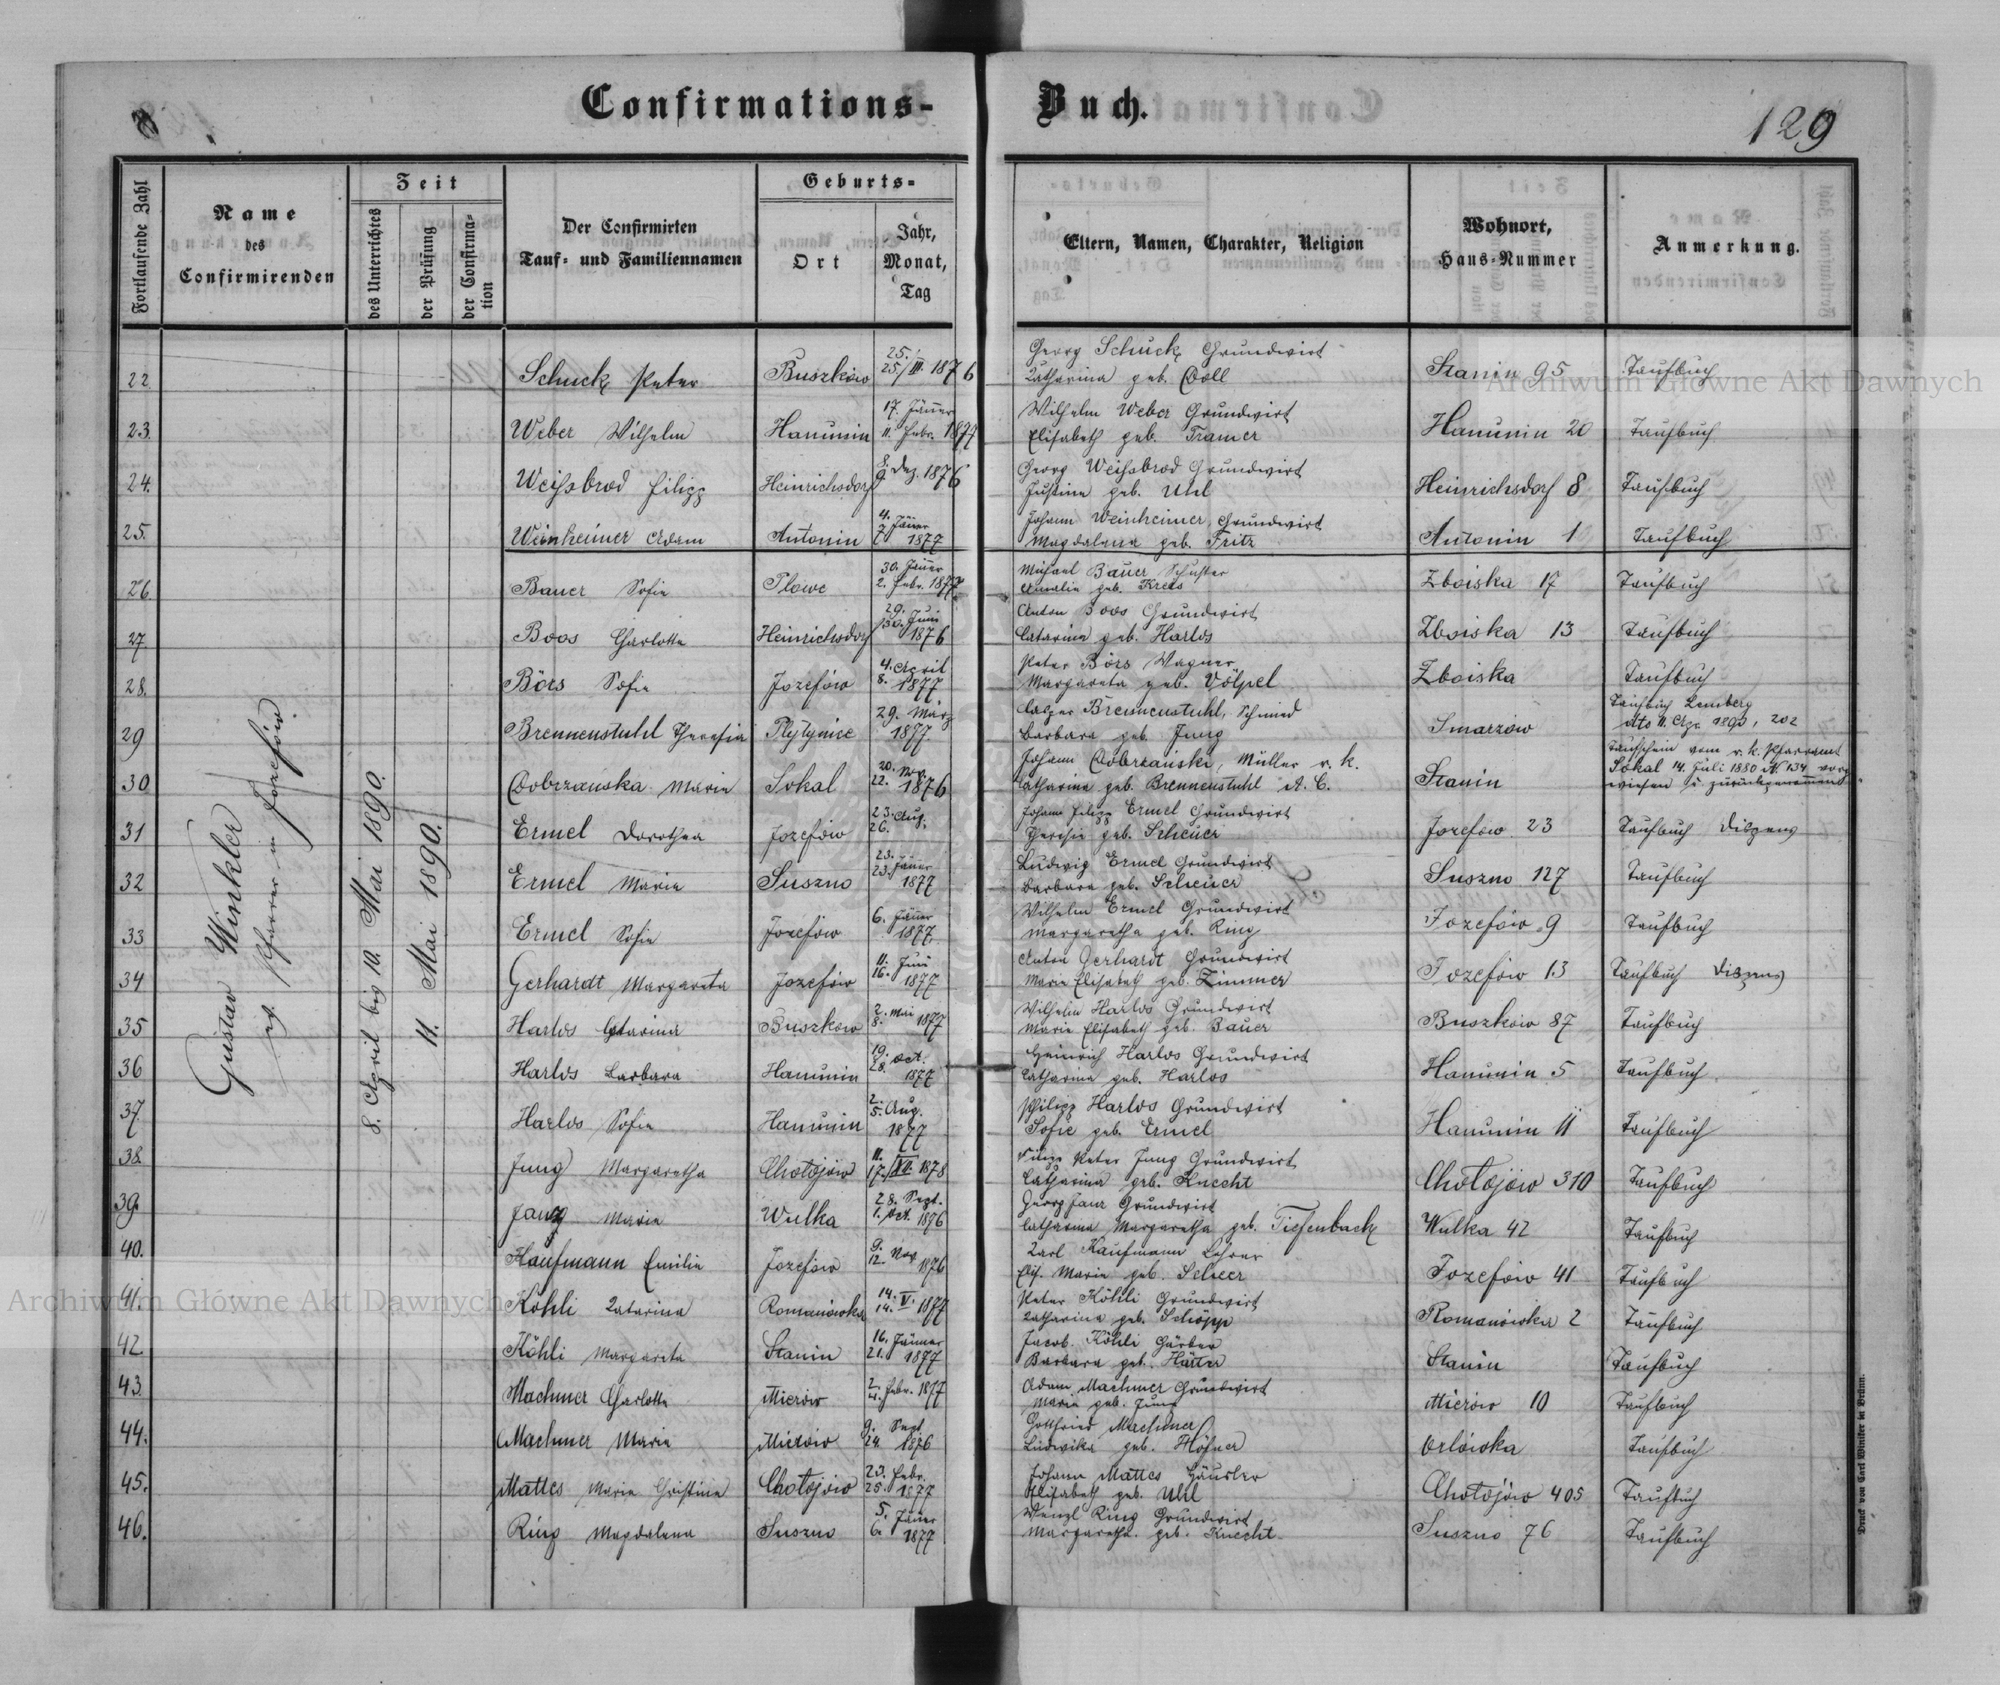 Confirmations-Buch.
8
129
Fortlaufende Zahl
Name
des
Confirmirenden
Zeit
des Unterrichtes
der Prüfung
der Confirmation
Der Confirmirten
Tauf- und Familiennamen
Geburts-
Ort
Jahr,
Monat,
Tag
Eltern, Namen, Charakter, Religion
Wohnort,
Haus-Nummer
Anmerkung.
Gustav Winkler
ev. Pfarrer in Józefów
8. April bis 10. Mai 1890.
11. Mai 1890.
22 Schuck Peter Buszków 25./25./III. 1876 Georg Schuck Grundwirt
Katharina geb. Doll Stanin 95 Taufbuch
23. Weber Wilhelm Hanunin 17. Jäner 11. Febr. 1877 Wilhelm Weber Grundwirt
Elisabeth geb. Framer Hanunin 20 Taufbuch
24. Weissbrod Filipp Heinrichsdorf 8. 9. Dez. 1876 Georg Weissbrod Grundwirt
Justina geb. Uhl Heinrichsdorf 8 Taufbuch
25. Weinheimer Adam Antonin 4. Jäner 7. 1877 Johann Weinheimer, Grundwirt
Magdalena geb. Fritz Antonin 1 Taufbuch
26. Bauer Sofie Płowe 30. Jäner 2. Febr. 1877 Michael Bauer Schuster
Amalia geb. Kreis Zboiska 17 Taufbuch
27. Boos Charlotte Heinrichsdorf 29. 30. Juni 1876 Anton Boos Grundwirt
Catarina geb. Harlos Zboiska 13 Taufbuch
28. Börs Sofie Józefów 4. April 8. 1877 Peter Börs Wagner
Margareta geb. Völpel Zboiska Taufbuch
29 Brennenstuhl Theresia 29. März 1877. Casper Brennenstuhl, Schmied
Barbara geb. Jung Smarzów Taufbuch Lemberg
202
30 Dobrzańska Marie Sokal 20. Nov. 22. 1876 Johann Dobrzański, Müller r. k.
Catharina geb. Brennenstuhl A. C. Stanin Taufschein vom r. k. Pfarramt
Sokal 14. Juli 1880 N. 134 vorge
wiesen u. zurückgenommen
31 Ermel Dorothea Józefów 23. Aug. 26. Johann Filipp Ermel Grundwirt
Theresia geb. Scheuer Józefów 23 Taufbuch Dispens
32 Ermel Marie Suszno 23. 23. Jäner 1877 Ludwig Ermel Grundwirt
Barbara geb. Scheuer Suszno 127 Taufbuch
33 Ermel Sofie Józefów 6. Jäner 1877 Wilhelm Ermel Grundwirt
Margaretha geb. Ring Józefów 9 Taufbuch
34 Gerhardt Margareta Józefów 11. Juni 16. 1877 Anton Gerhardt Grundwirt
Marie Elisabeth geb. Zimmer Józefów 13 Taufbuch Dispens
35 Harlos Catarina Buszków 2. Mai 8. 1877 Wilhelm Harlos Grundwirt
Marie Elisabeth geb. Bauer Buszków 87 Taufbuch
36 Harlos Barbara Hanunin 19. Oct. 28. 1877 Heinrich Harlos Grundwirt
Catharina geb. Harlos Hanunin 5 Taufbuch
37. Harlos Sofie Hanunin 2. 5. Aug. 1877 Philipp Harlos Grundwirt
Sofie geb. Ermel Hanunin 11 Taufbuch
38. Jung Margaretha Chołojów 11. 17./XII. 1878 Filipp Peter Jung Grundwirt
Catharina geb. Knecht Chołojów 310 Taufbuch
39. Marie Wulka 28. Sept. 1. Oct. 1876 Georg Grundwirt
Catharina Margaretha geb. Tiefenbach Wulka 42 Taufbuch
40. Kaufmann Emilie Józefów 9. 12. Nov. 1876 Karl Kaufmann Lehrer
Elis. Marie geb. Scheer Józefów 41 Taufbuch
41. Köhli Katarina Romanówka 14. 14. V. 1877 Peter Köhli Grundwirt
Katharina geb. Schöpp Romanówka 2 Taufbuch
42. Köhli Margareta Stanin 16. Jänner 21. 1877 Jacob Köhli Gärber
Barbara geb. Stanin Taufbuch
43. Machmer Charlotte Mierów 2. 4. Febr. 1877 Adam Machmer Grundwirt
Marie geb. Jung Mierów 10 Taufbuch
44. Machmer Marie Mierów 9. Sept. 24. 1876 Gottfried Machmer
Ludwika geb. Höfner Orlówka Taufbuch
45. Mattes Marie Christine Chołojów 23. Febr. 25. 1877 Johann Mattes Häusler
Elisabeth geb. Uhl Chołojów 405 Taufbuch
46. Ring Magdalena Suszno 5. Jäner 6. 1877 Wenzl Ring Grundwirt
Margaretha geb. Knecht. Suszno 76 Taufbuch
Druck von Carl Winiker in Brünn.
Archiwum Główne Akt Dawnych
Archiwum Główne Akt Dawnych